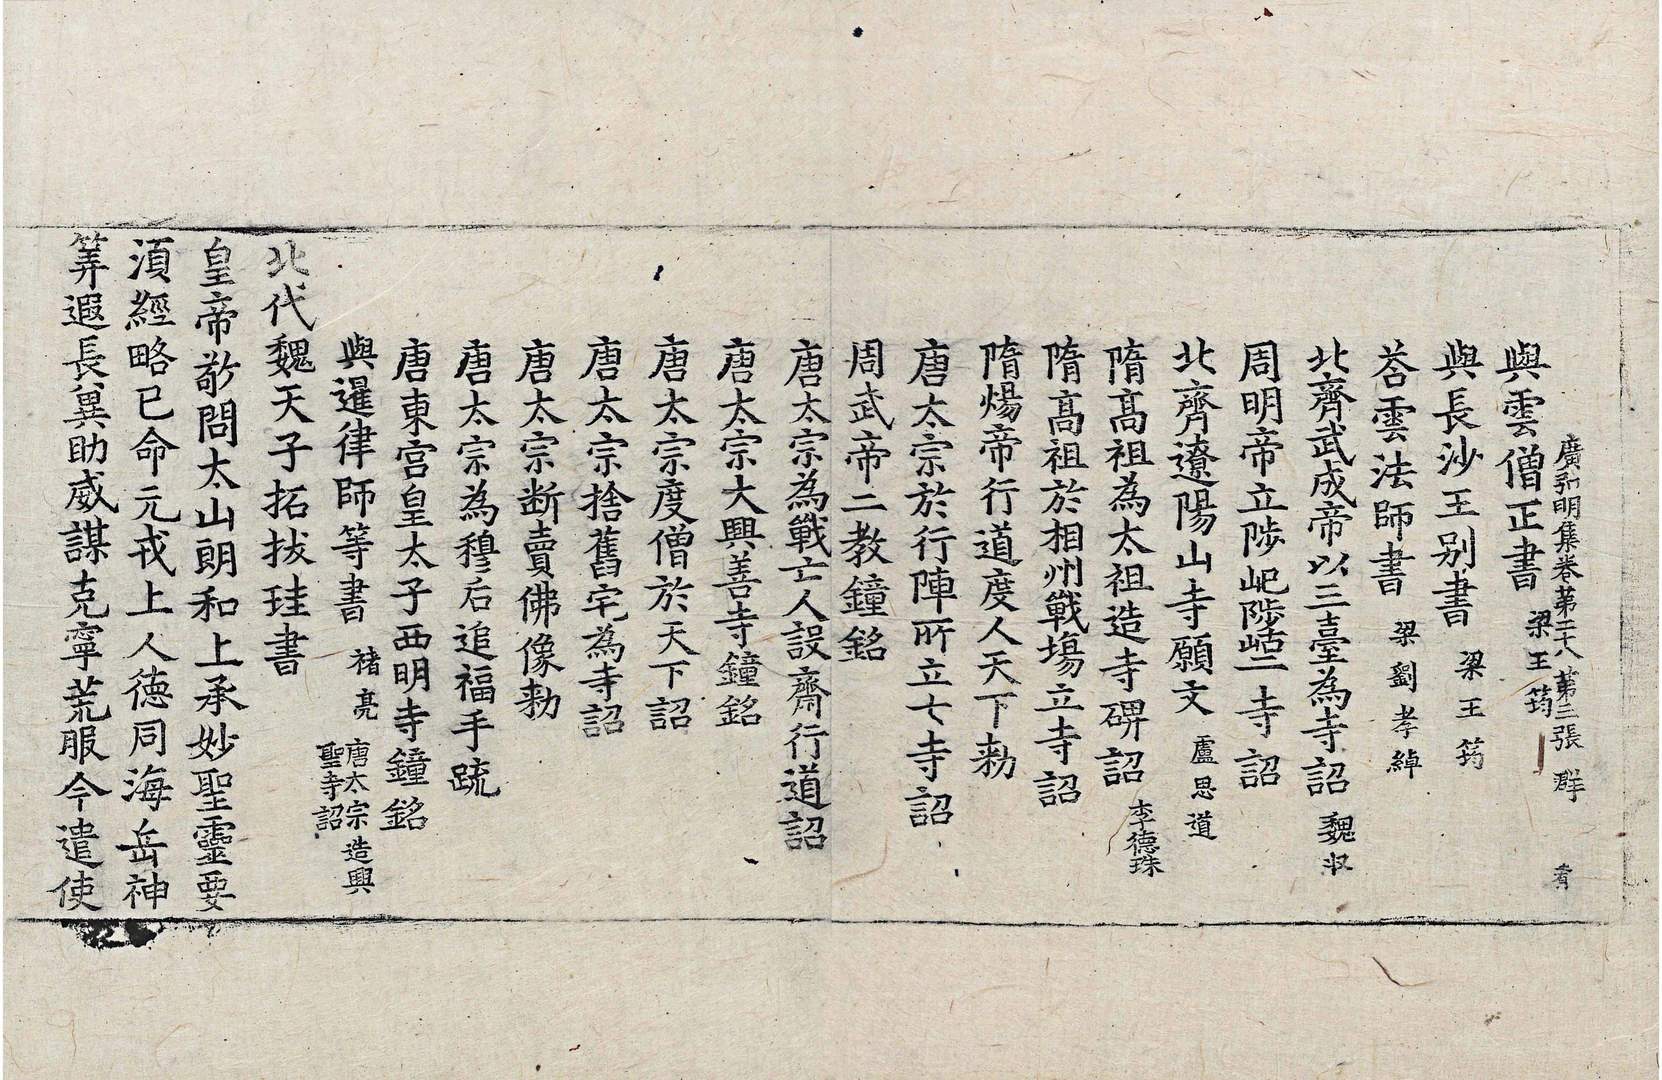 廣弘明集卷第二十八 第三張 群 肴
與雲僧正書 梁王筠
與長沙王別書 梁王筠
荅雲法師書 梁劉孝綽
北齊武成帝以三臺為寺詔 魏収
周明帝立陟屺陟岵二寺詔
北齊遼陽山寺願文 盧思道
隋髙祖為太祖造寺碑詔 李德珠
隋髙祖於相州戰場立寺詔
隋煬帝行道度人天下勑
唐太宗於行陣所立七寺詔
周武帝二教鐘銘
唐太宗為戰亡人設齋行道詔
唐太宗大興善寺鐘銘
唐太宗度僧於天下詔
唐太宗捨舊宅為寺詔
唐太宗断賣佛像勑
唐太宗為穆后追福手疏
唐東宮皇太子西明寺鐘銘
與暹律師等書 褚亮 唐太宗造興聖寺詔
北代魏天子拓拔珪書
皇帝敬問太山朗和上承妙聖靈要
湏經略已命元戎上人德同海岳神
筭遐長兾助威謀克寧荒服今遣使